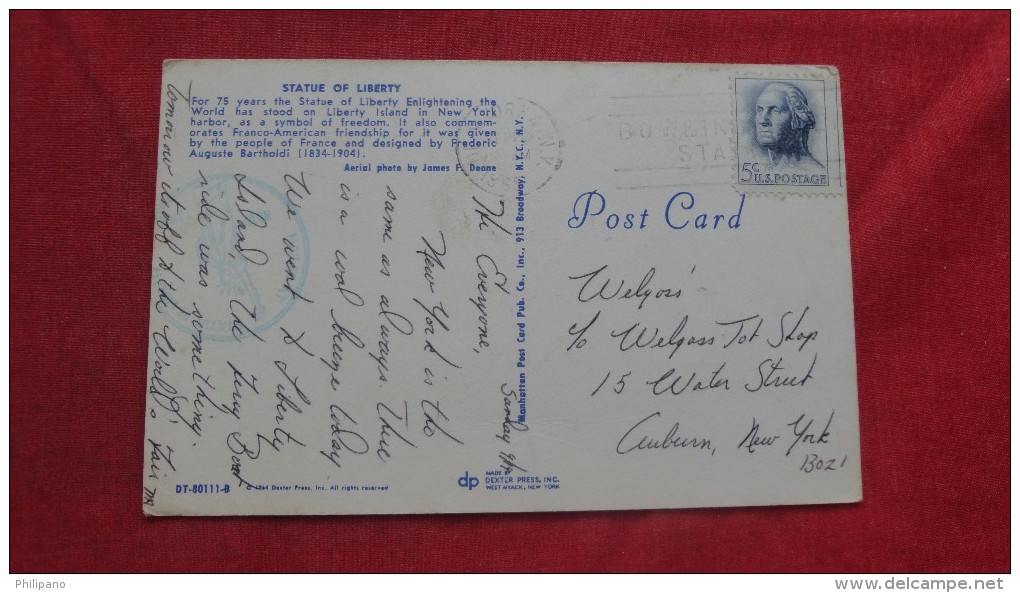 STATUE OF LIBERTY
For 75 years the Statue of Liberty Enlightening the
World has stood on Liberty Island in New York
harbor, as a symbol of freedom. It also commem-
orates Franco-American friendship for it was given
by the people of France and designed by Frederic
Auguste Bartholdi (1834-1904).
Aerial photo by James F. Doane
Sunday
Hi Everyone,
New York is the
same as always. There
is a cool breeze today
We went to Liberty
Island, The Ferry Boat
ride was something.
Tomorrow its off to the World's Fair
DT-80111-B
© 1964 Dexter Press, Inc. All rights reserved
dp
MADE BY
DEXTER PRESS, INC.
WEST NYACK, NEW YORK
Manhattan Post Card Pub. Co., Inc., 913 Broadway, N.Y.C., N.Y.
5¢
U.S. POSTAGE
Post Card
c/o Welgoss Tot Shop
15 Water Street
Auburn, New York
13021
Philipano
www.delcampe.net